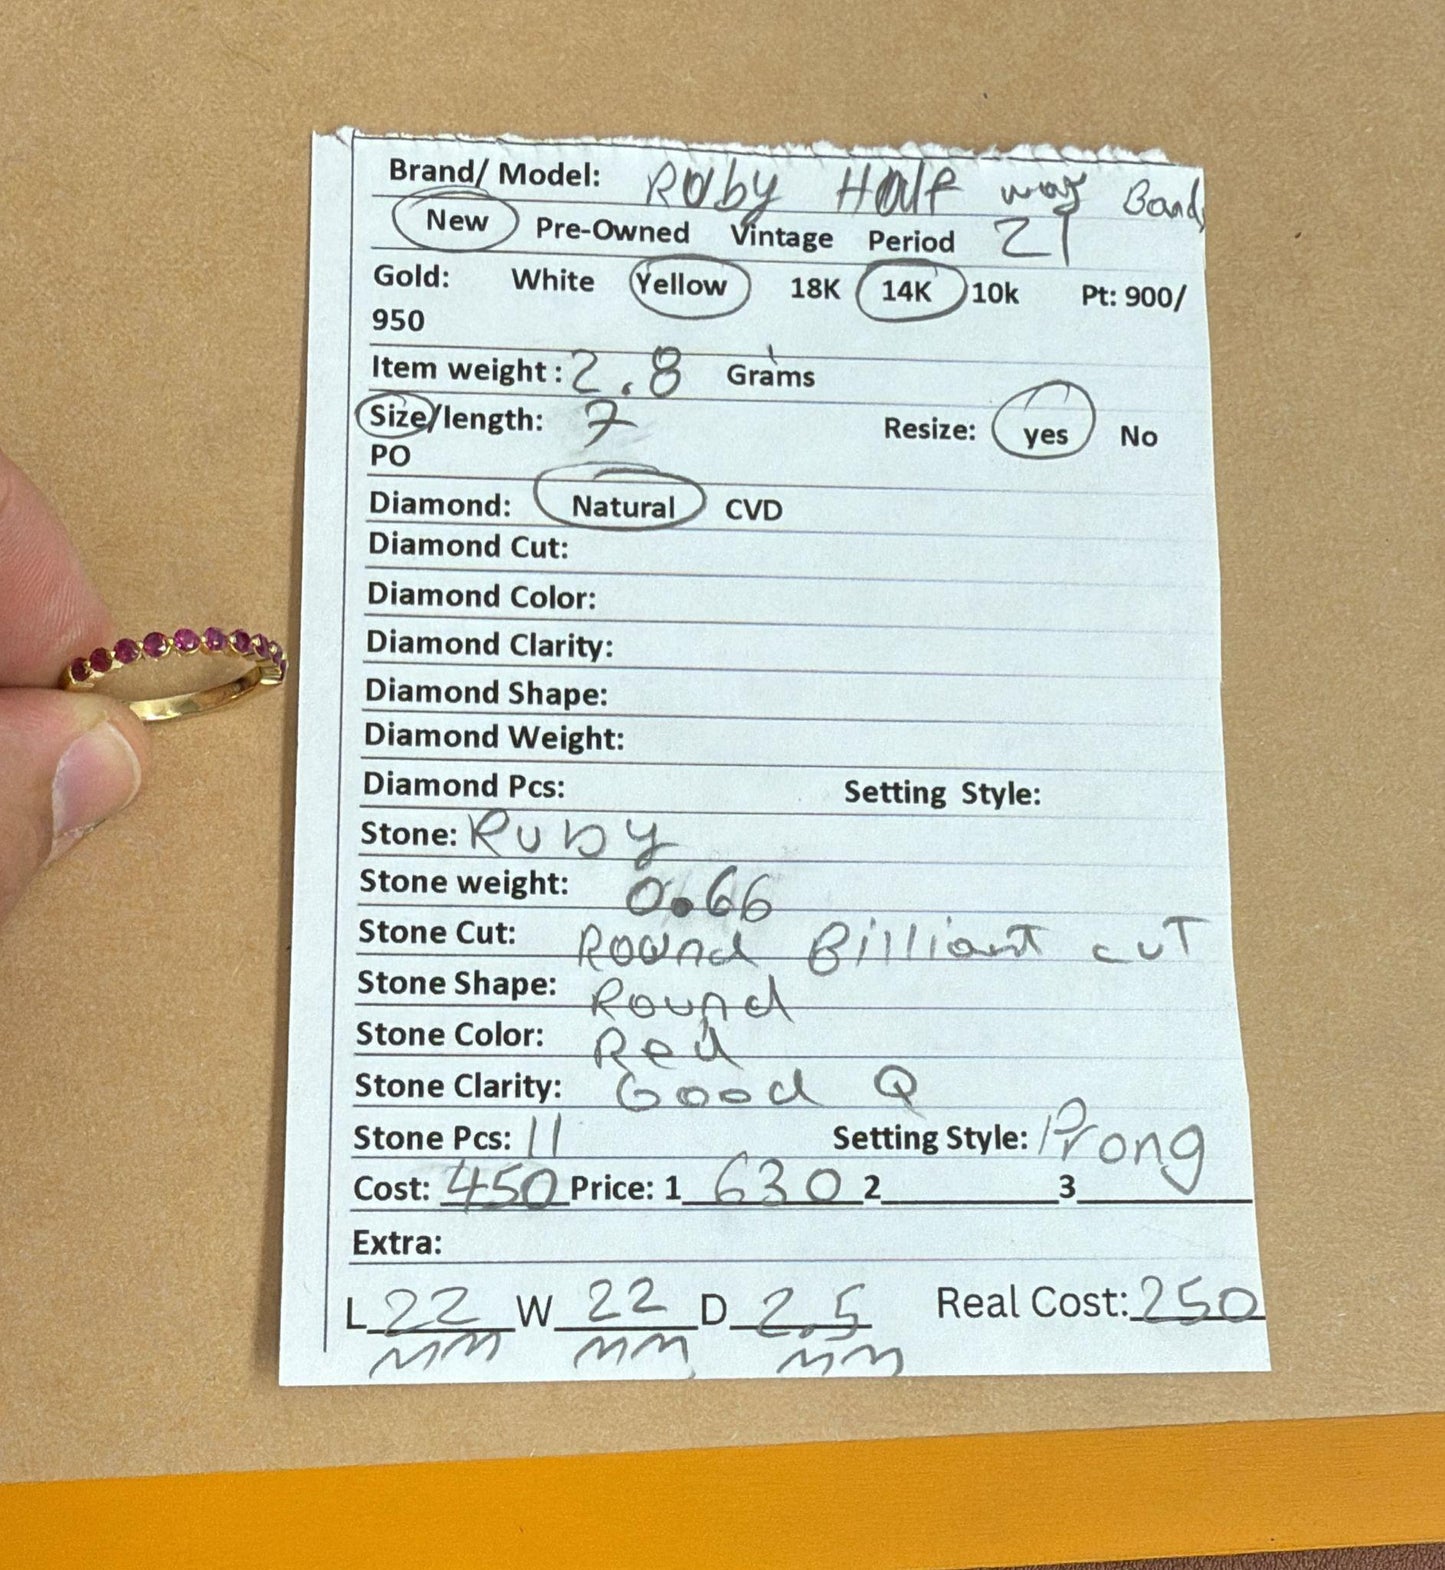 Brand/ Model: Ruby Half way Band
New Pre-Owned Vintage Period 21
Gold: White Yellow 18K 14K 10k Pt: 900/
950
Item weight : 2.8 Grams
Size/length: 7 Resize: yes No
PO
Diamond: Natural CVD
Diamond Cut:
Diamond Color:
Diamond Clarity:
Diamond Shape:
Diamond Weight:
Diamond Pcs: Setting Style:
Stone: Ruby
Stone weight: 0.66
Stone Cut: Round Billiant cut
Stone Shape: Round
Stone Color: Red
Stone Clarity: Good Q
Stone Pcs: 11 Setting Style: Prong
Cost: 450 Price: 1 630 2 3
Extra:
L 22 W 22 D 2.5 Real Cost: 250
mm mm mm